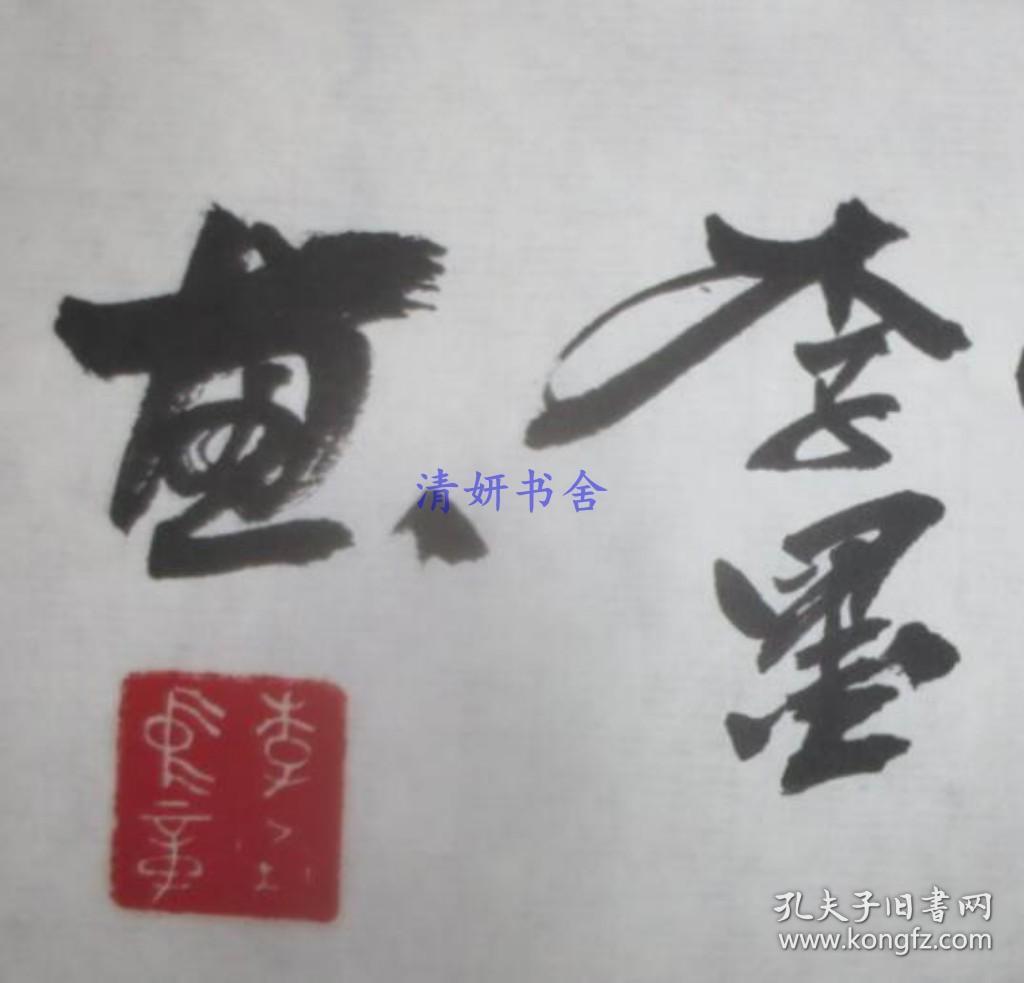 李墨
画
清妍书舍
孔夫子旧書网
www.kongfz.com